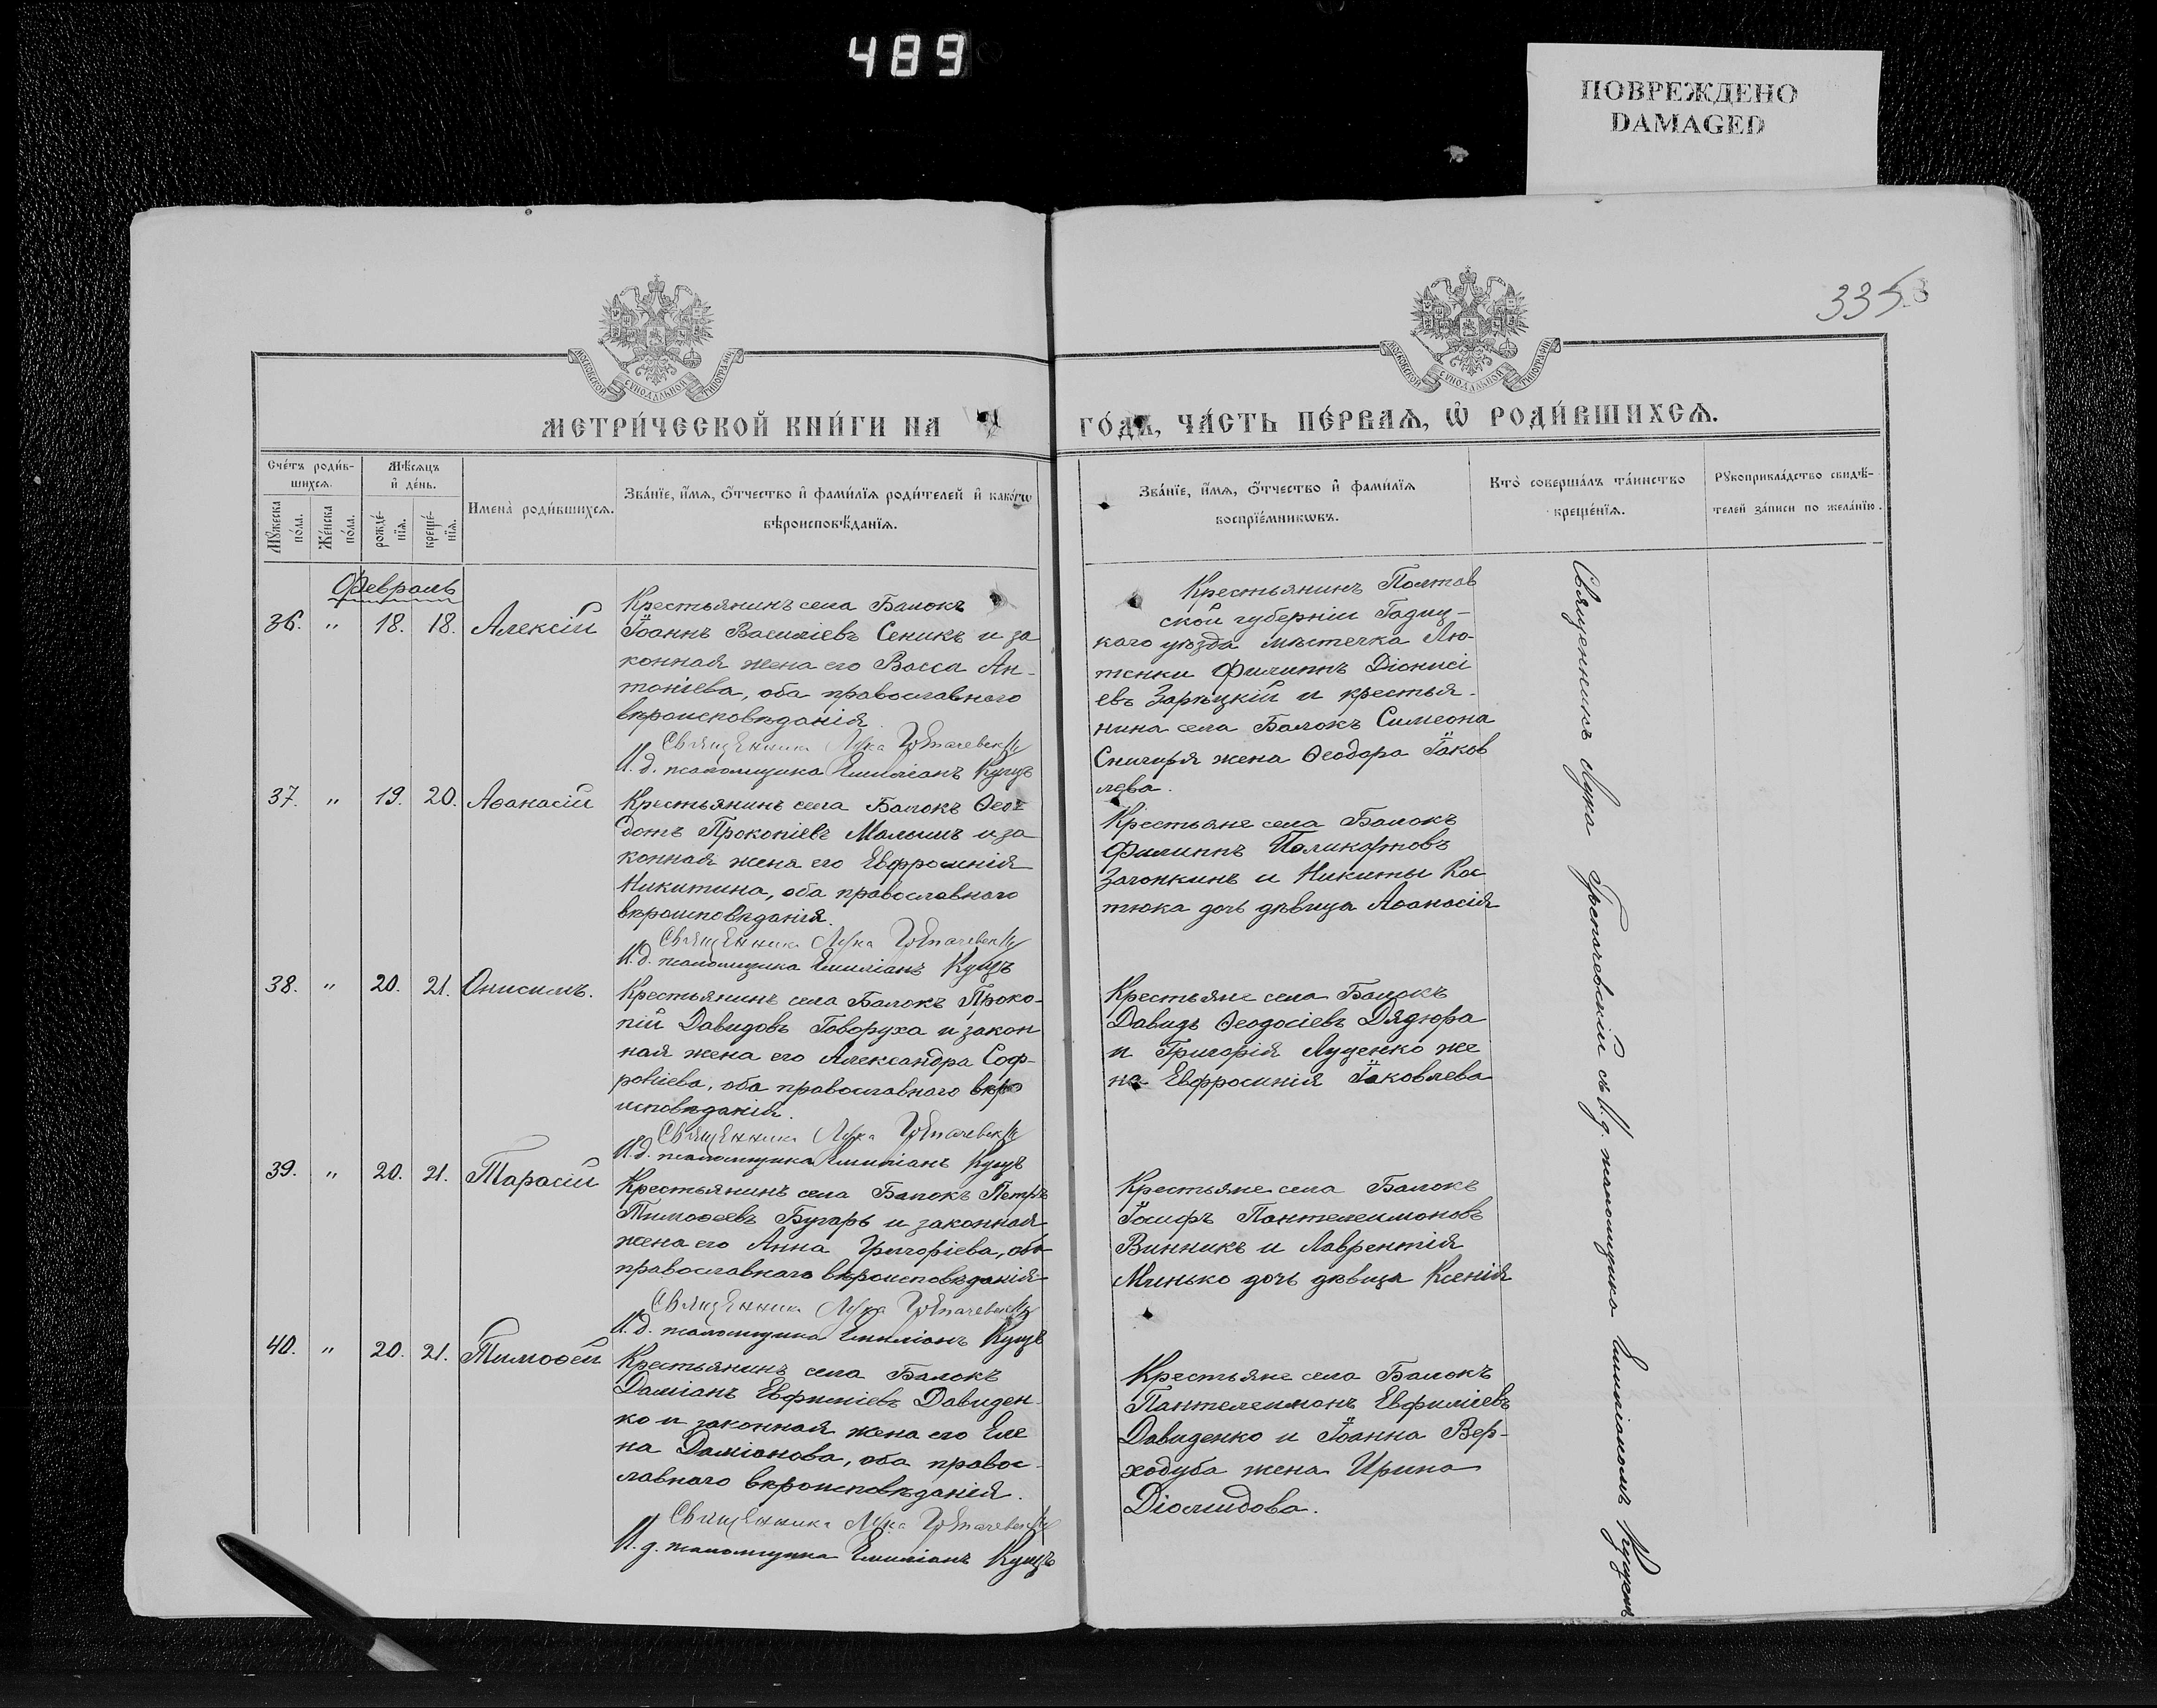 489
ПОВРЕЖДЕНО
DAMAGED
335
МОСКОВСКОЙ СѴНОДАЛЬНОЙ ТИПОГРАФІИ
МОСКОВСКОЙ СѴНОДАЛЬНОЙ ТИПОГРАФІИ
МЕТРИ́ЧЕСКОЙ КНИ́ГИ НА
ГО́ДЪ, ЧА́СТЬ ПЕ́РВАѦ, Ѽ РОДИ́ВШИХСѦ.
Сче́тъ роди́в-
шихсѧ.
Мѣ́сѧцъ
и҆ де́нь.
Мꙋ́жеска
по́ла.
Же́нска
по́ла.
рожде́-
нїѧ.
креще́-
нїѧ.
Имена̀ роди́вшихсѧ.
Зва́нїе, и҆́мѧ, ѻ҆́тчество и҆ фами́лїѧ роди́телей и҆ како́гѡ
вѣроисповѣ́данїѧ.
Зва́нїе, и҆́мѧ, ѻ҆́тчество и҆ фами́лїѧ
воспрїе́мникѡвъ.
Кто̀ соверша́лъ та́инство
креще́нїѧ.
Рꙋкоприкла́дство свидѣ́-
телей за́писи по жела́нїю.
Февраль
36. " 18. 18. Алексій
Крестьянинъ села Балокъ
Іоаннъ Василіевъ Сеникъ и за
конная жена его Васса Ан-
тоніева, оба православнаго
вѣроисповѣданія.
Священникъ Лука Греначевскій
И.д. псаломщика Емиліанъ Куцъ
Крестьянинъ Полтав
ской губерніи Гадяц-
каго уѣзда мѣстечка Лю-
теньки Филиппъ Діонисі
евъ Зарѣцкій и крестья-
нина села Балокъ Симеона
Снигиря жена Ѳеодора Іаков
лева.
37. " 19. 20. Аѳанасій
Крестьянинъ села Балокъ Ѳео-
дотъ Прокопіевъ Малышъ и за
конная жена его Евфросинія
Никитина, оба православнаго
вѣроисповѣданія.
Священникъ Лука Греначевскій
И.д. псаломщика Емиліанъ Куцъ
Крестьяне села Балокъ
Филиппъ Поликарповъ
Загонкинъ и Никиты Кос
тюка дочь дѣвица Аѳанасія
38. " 20. 21. Онисимъ.
Крестьянинъ села Балокъ Проко-
пій Давидовъ Говоруха и закон
ная жена его Александра Соф-
роніева, оба православнаго вѣро
исповѣданія.
Священникъ Лука Греначевскій
И.д. псаломщика Емиліанъ Куцъ
Крестьяне села Балокъ
Давидъ Ѳеодосіевъ Дядюра
и Григорія Луценко же
на Евфросинія Іаковлева
39. " 20. 21. Тарасій
Крестьянинъ села Балокъ Петръ
Тимоѳеевъ Бугарь и законная
жена его Анна Григоріева, оба
православнаго вѣроисповѣданія
Священникъ Лука Греначевскій
И.д. псаломщика Емиліанъ Куцъ
Крестьяне села Балокъ
Іосифъ Пантелеимоновъ
Винникъ и Лаврентія
Минько дочь дѣвица Ксенія
40. " 20. 21. Тимоѳей
Крестьянинъ села Балокъ
Даміанъ Евфиміевъ Давиден-
ко и законная жена его Еле
на Даміанова, оба правос-
лавнаго вѣроисповѣданія.
Священникъ Лука Греначевскій
И.д. псаломщика Емиліанъ Куцъ
Крестьяне села Балокъ
Пантелеимонъ Евфиміевъ
Давиденко и Іоанна Вер-
ходуба жена Ирина
Діомидова.
Священникъ Лука Греначевскій съ И.д. псаломщика Емиліаномъ Куцемъ